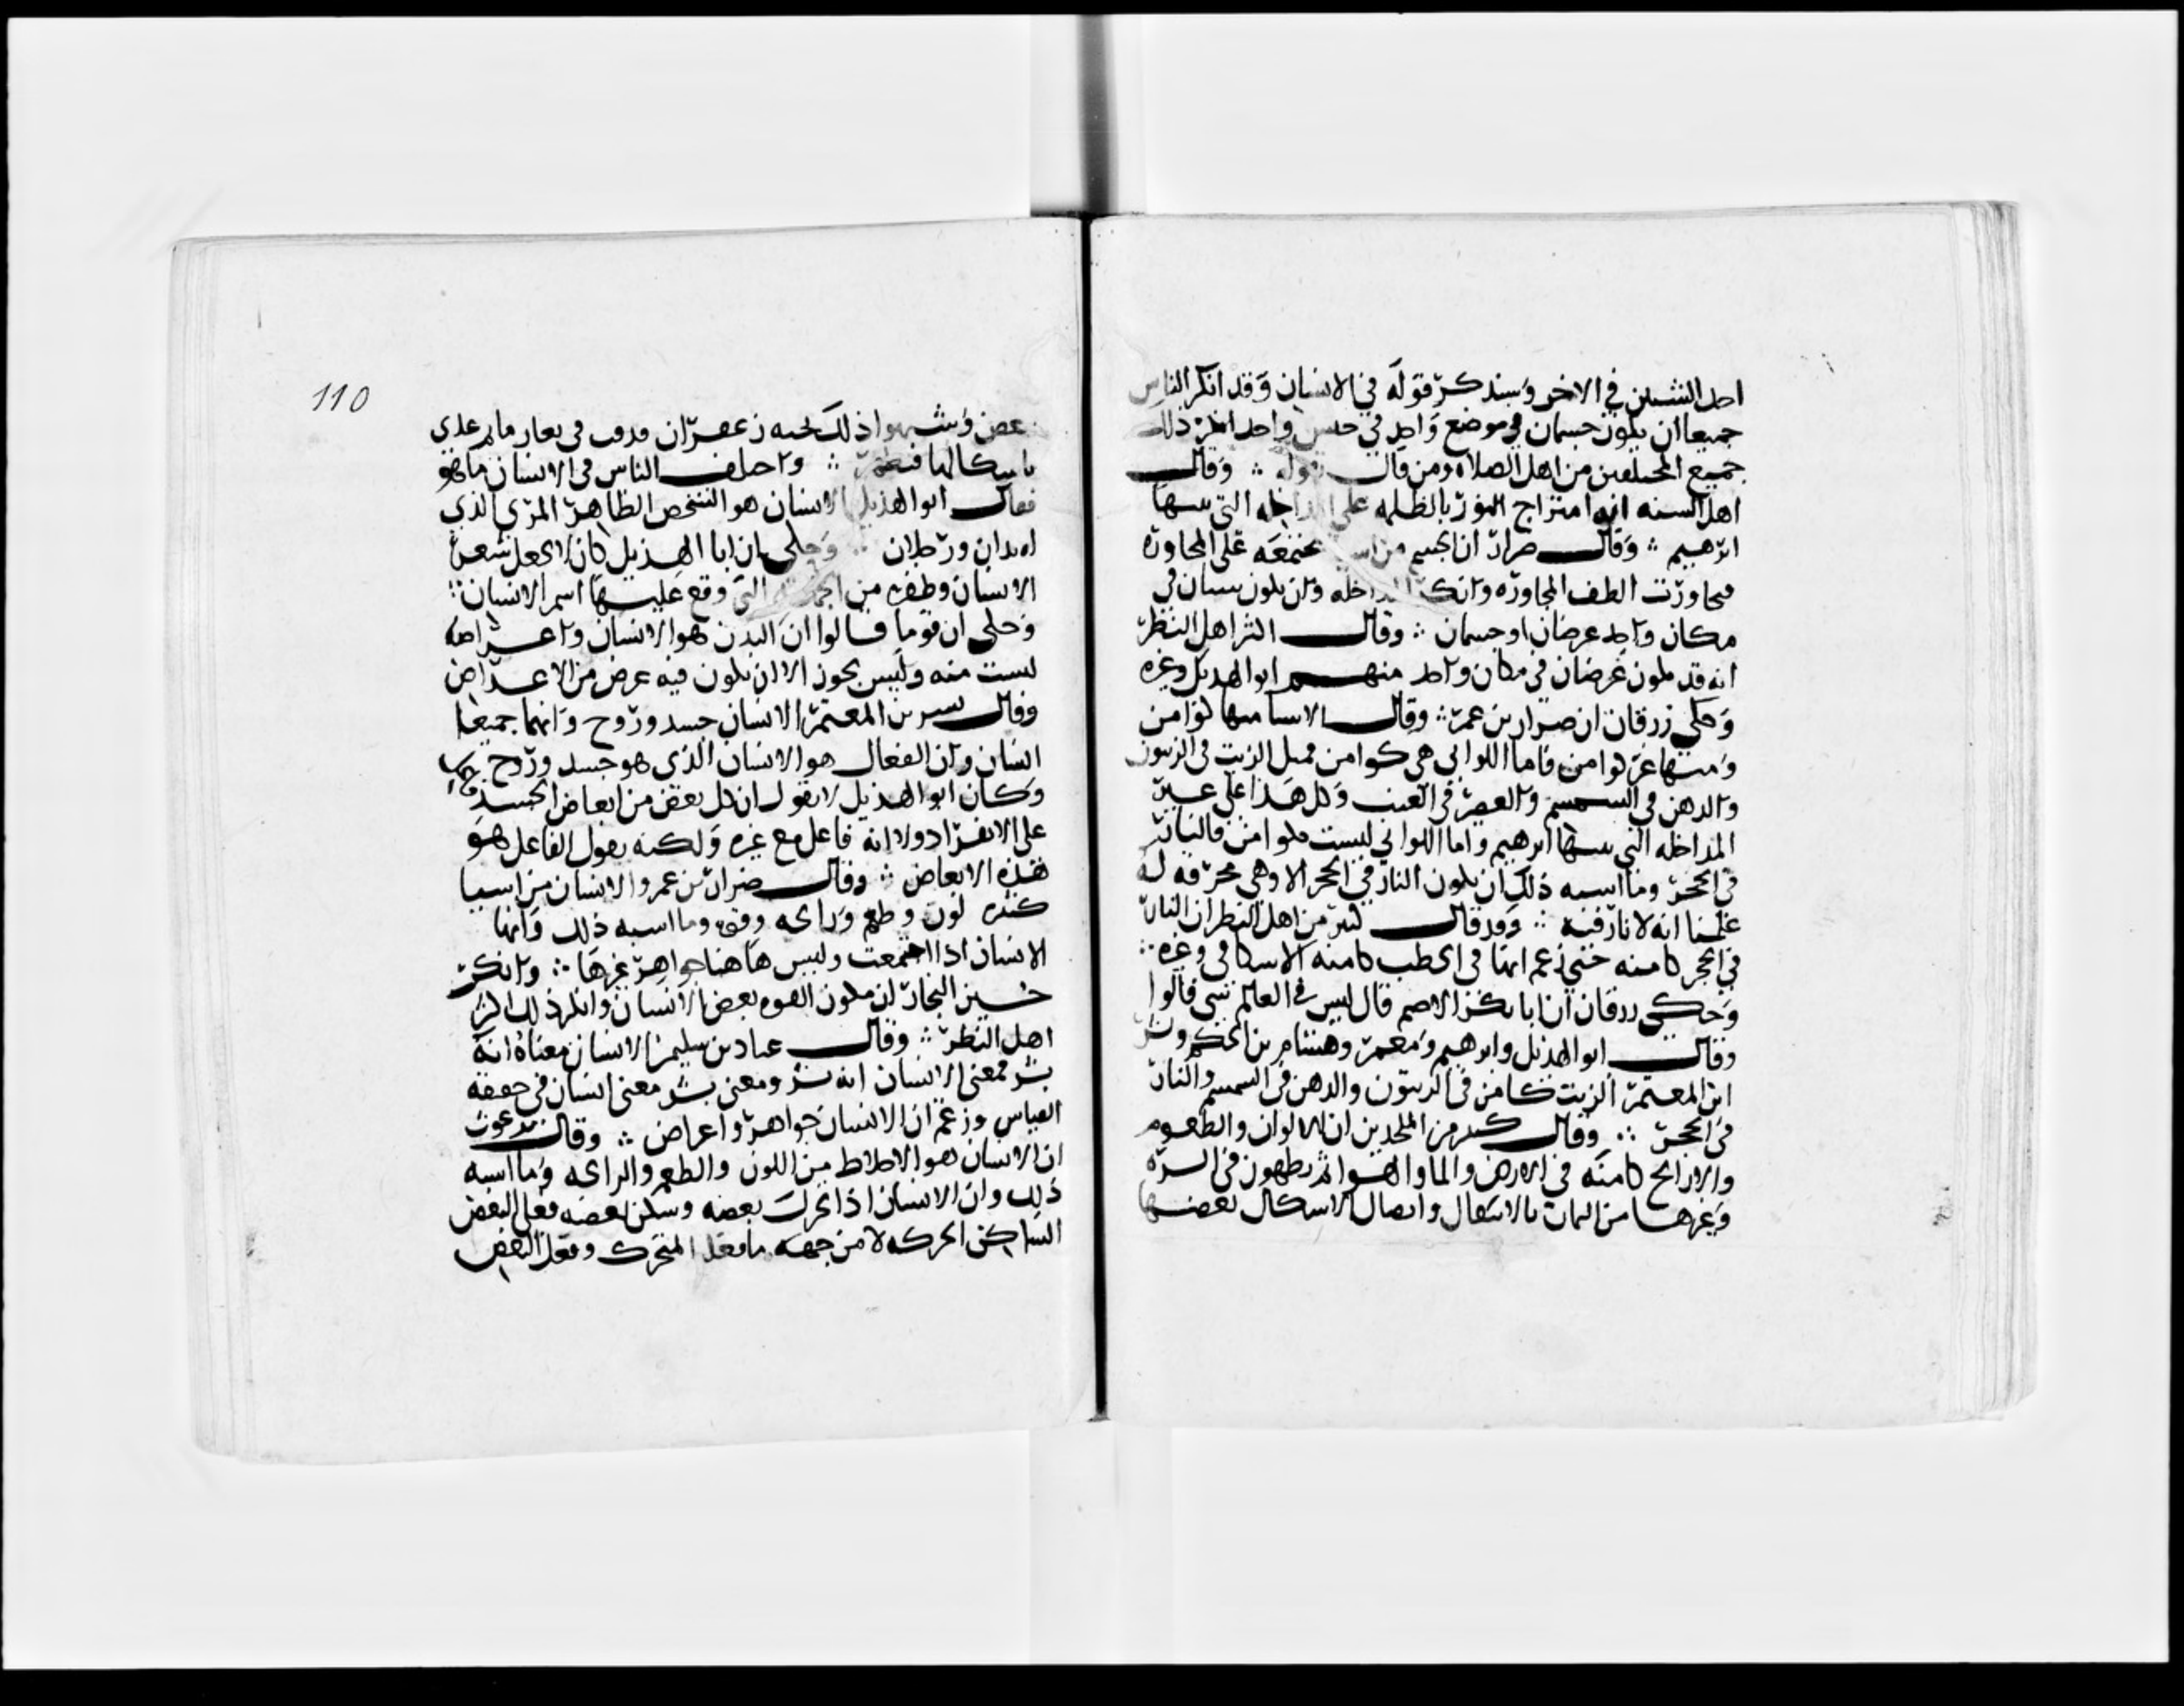 احد الشيئين في الاخر وسنذكر قوله في الانسان وقد انكر الناس
جميعا ان يكون جسمان في موضع واحد في حين واحد انكر ذلك
جميع المختلفين من اهل الصلاه ومن قال بقوله ∴ وقال
اهل السنه انه امتزاج النور بالظلمه على المداخله التي ثبتها
ابرهيم ∴ وقال ضرار ان الجسم من اشيا مجتمعه على المجاوره
فتجاورت الطف المجاوره وانكر المداخله وان يكون شيان في
مكان واحد عرضان او جسمان ∴ وقال اكثر اهل النظر
انه قد يكون عرضان في مكان واحد منهم ابو الهذيل وغيره
وحكى زرقان ان ضرار بن عمر ∴ وقال الاشيا منها كوامن
ومنها غير كوامن فاما اللواتي هي كوامن فمثل الزيت في الزيتون
والدهن في السمسم والعصير في العنب وكل هذا على غير
المداخله التي ثبتها ابرهيم واما اللواتي ليست بكوامن فالنار
في الحجر وما اشبه ذلك ان يكون النار في الحجر الا وهي محرقه له
علمنا انه لا نار فيه ∴ وقد قال كثير من اهل النظر ان النار
في الحجر كامنه حتى زعم انها في الحطب كامنه الاسكافي وغيره ∴
وحكى زرقان ان ابا بكر الاصم قال ليس في العالم شي قالوا
وقال ابو الهذيل وابرهيم ومعمر وهشام بن الحكم وبشر
ابن المعتمر الزيت كامن في الزيتون والدهن في السمسم والنار
في الحجر ∴ وقال كثير من الملحدين ان الالوان والطعوم
والاراييح كامنه في الارض والما والهوا ثم يظهرون في البسره
وغيرها من الثمار بالانتقال واتصال الاشكال بعضها
110
بعض وشبهوا ذلك بحبه زعفران قذفت في بعار ما ثم غذي
باشكالها فتظهر ∴ واختلف الناس في الانسان ما هو
فقال ابو الهذيل الانسان هو الشخص الظاهر المرئ الذي
له يدان ورجلان ∴ وحكى ان ابا الهذيل كان لا يجعل شعر
الانسان وظفره من الجمله التي وقع عليها اسم الانسان ∴
وحكى ان قوما قالوا ان البدن هو الانسان واعراضه
ليست منه وليس يجوز الا ان يكون فيه عرض من الاعراض
وقال بشر بن المعتمر الانسان جسد وروح وانهما جميعا
انسان وان الفعال هو الانسان الذي هو جسد وروح
وكان ابو الهذيل لا يقول ان كل بعض من ابعاض الجسد فاعل
على الانفراد ولا انه فاعل مع غيره ولكنه يقول الفاعل هو
هذه الابعاض ∴ وقال ضرار بن عمرو الانسان من اشيا
كثيره لون وطعم ورائحه وقوه وما اشبه ذلك وانها
الانسان اذا اجتمعت وليس هاهنا جواهر غيرها ∴ وانكر
حسين النجار ان يكون القوه بعض الانسان وانكر ذلك اكثر
اهل النظر ∴ وقال عباد بن سليمن الانسان معناه انه
بشر فمعنى الانسان انه بشر ومعنى بشر معنى انسان في حقيقه
القياس وزعم ان الانسان جواهر واعراض ∴ وقال برغوث
ان الانسان هو الاخلاط من اللون والطعم والرائحه وما اشبه
ذلك وان الانسان اذا تحرك بعضه وسكن بعضه فعل البعض
الساكن الحركه لا من جهه ما فعل المتحرك وفعل البعض